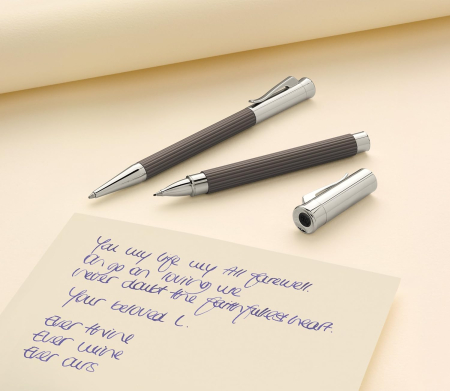 You my life my All farewell.
On go on loving me
never doubt the faithfullest heart.
Your beloved L.
Ever thine
Ever mine
Ever ours